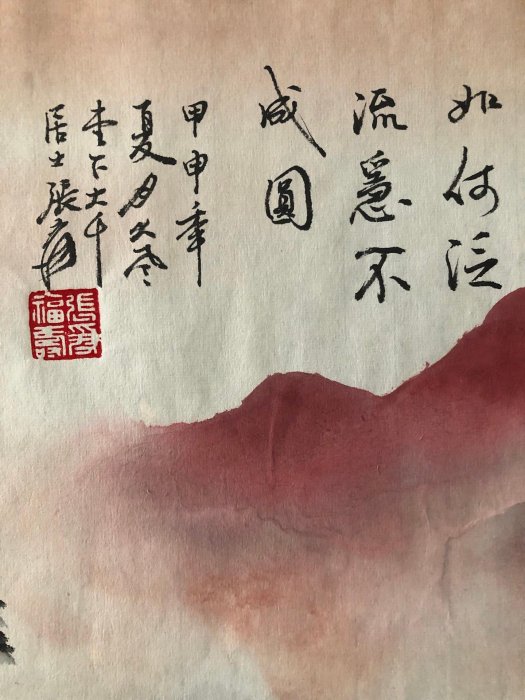 如何泛
流急不
成圓
甲申年
夏月大風
堂下大千
居士張爰
張爰
福壽